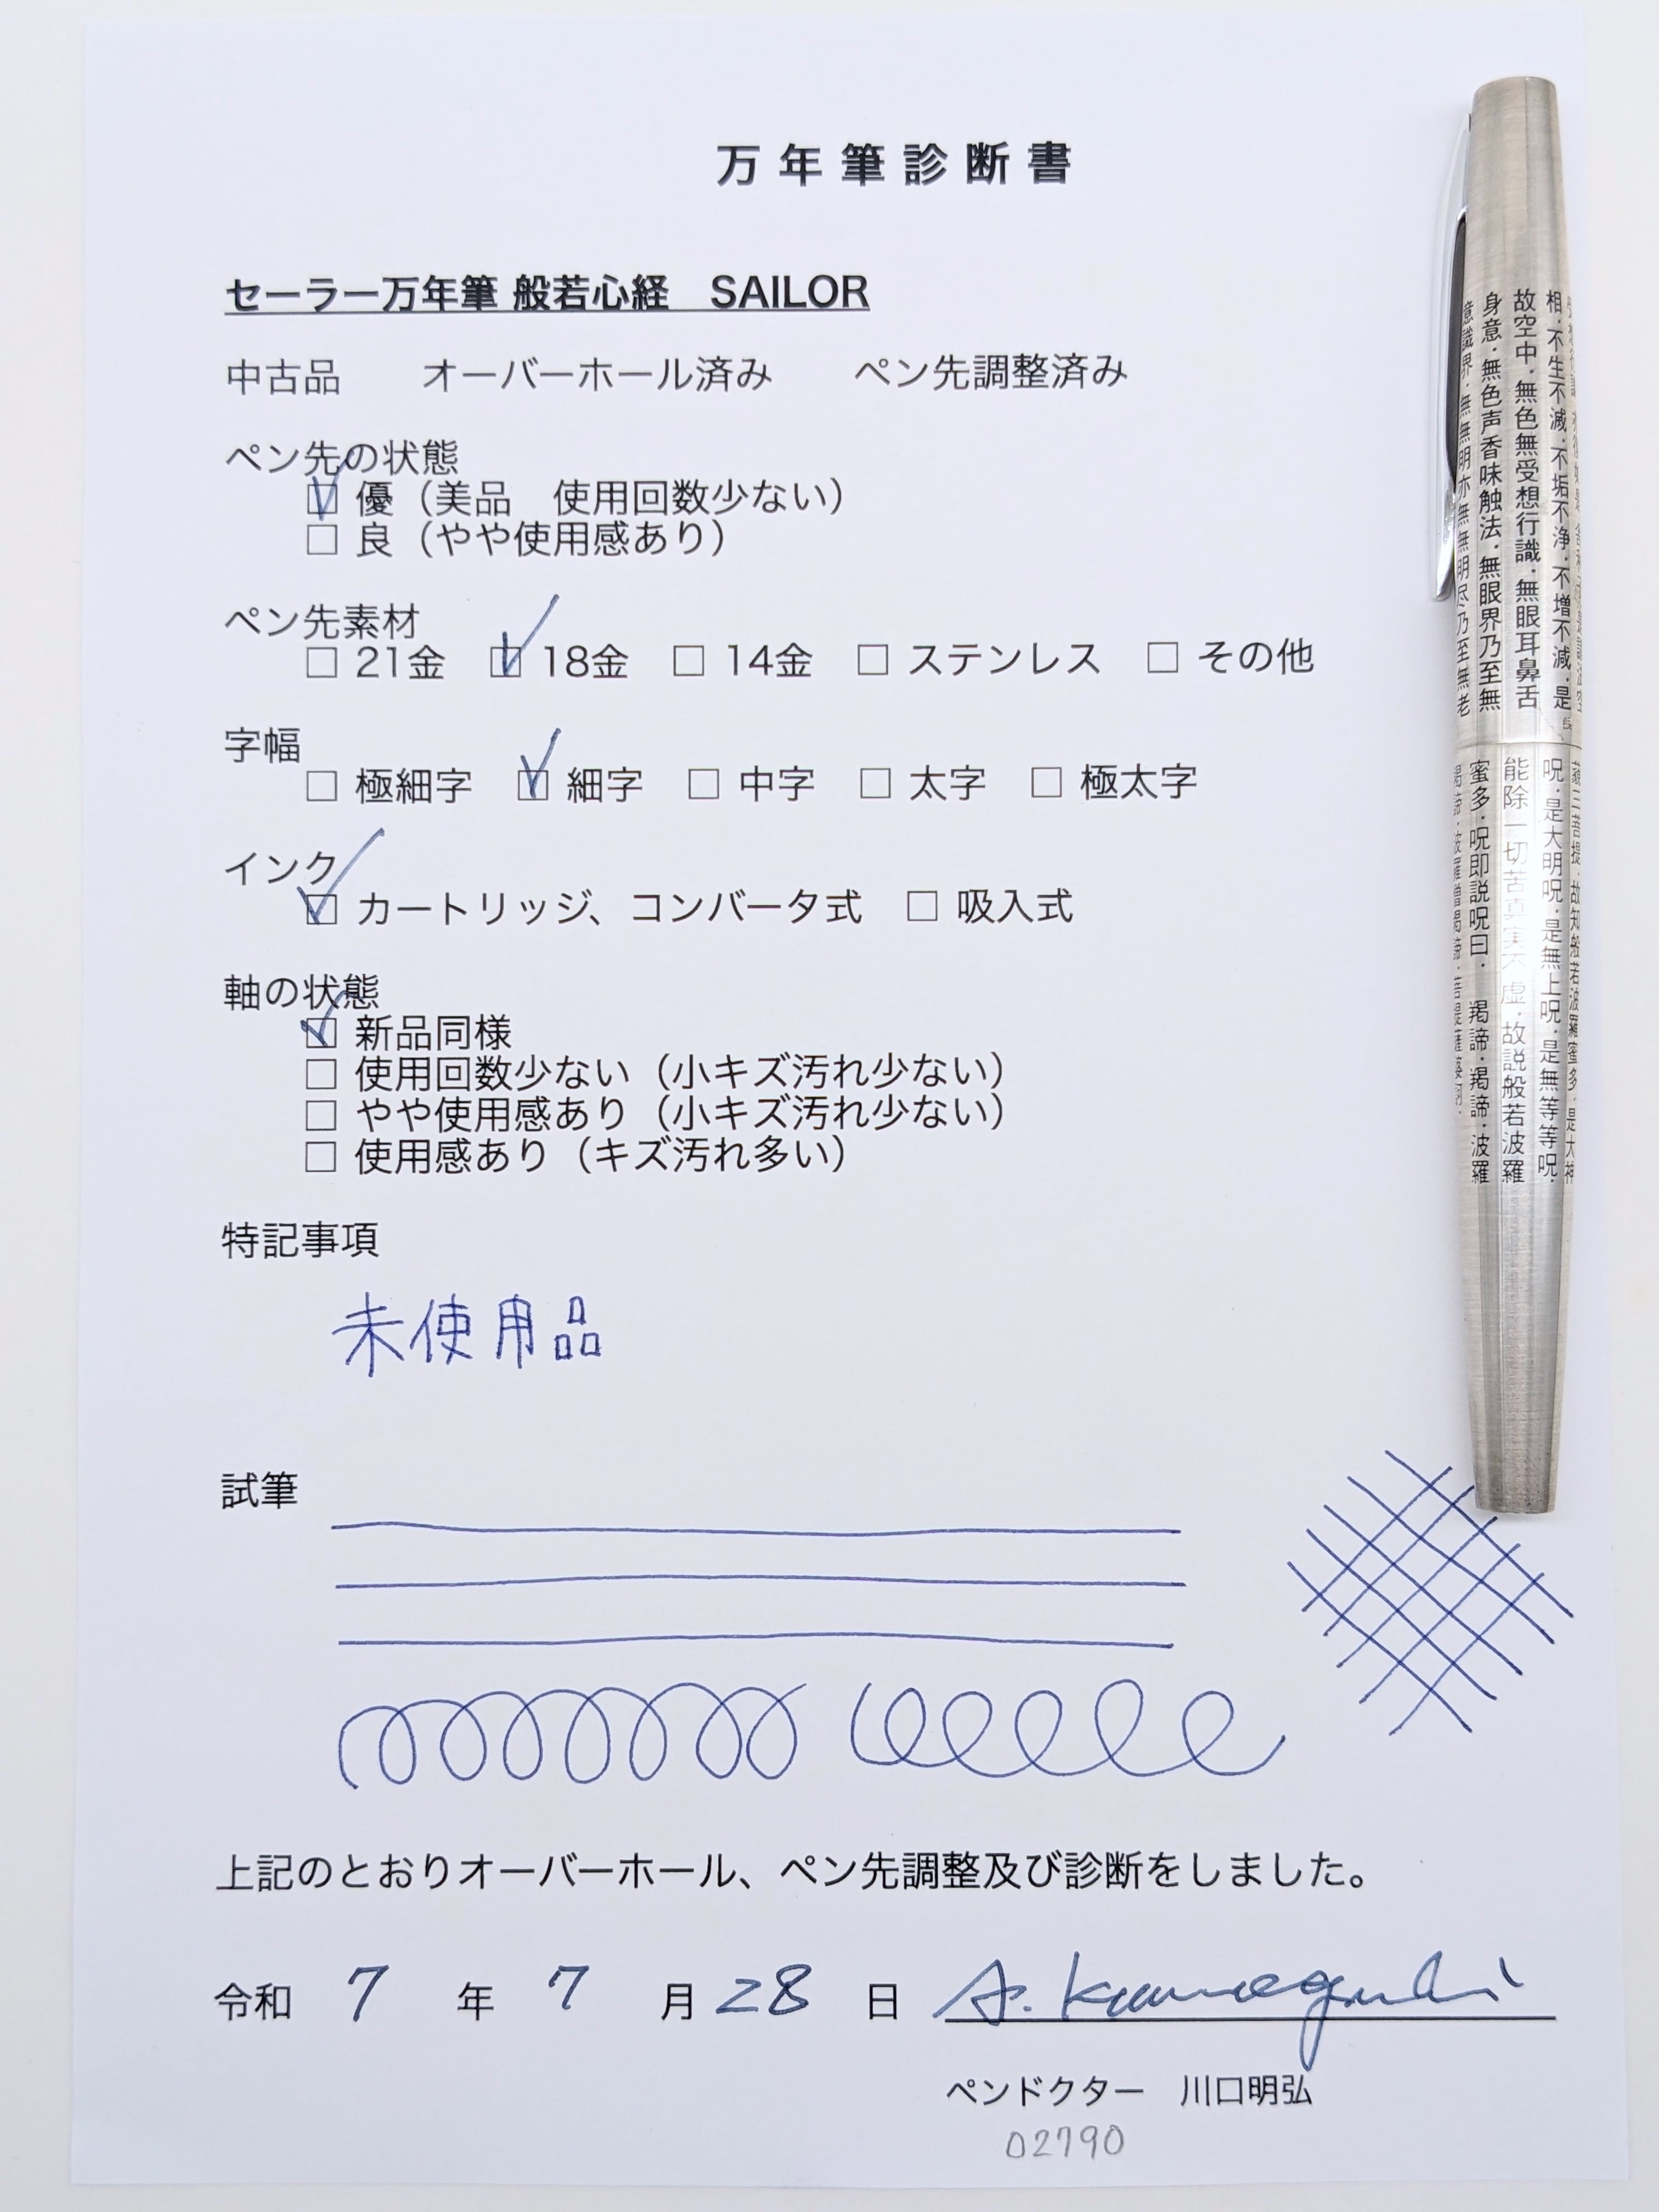 万年筆診断書
セーラー万年筆 般若心経　SAILOR
中古品　　オーバーホール済み　　ペン先調整済み
ペン先の状態
☑ 優（美品　使用回数少ない）
□ 良（やや使用感あり）
ペン先素材
□ 21金　☑ 18金　□ 14金　□ ステンレス　□ その他
字幅
□ 極細字　☑ 細字　□ 中字　□ 太字　□ 極太字
インク
☑ カートリッジ、コンバータ式　□ 吸入式
軸の状態
☑ 新品同様
□ 使用回数少ない（小キズ汚れ少ない）
□ やや使用感あり（小キズ汚れ少ない）
□ 使用感あり（キズ汚れ多い）
特記事項
未使用品
試筆
上記のとおりオーバーホール、ペン先調整及び診断をしました。
令和 7 年 7 月 28 日 A. Kawaguchi
ペンドクター　川口明弘
02790
相・不生不滅・不垢不浄・不増不減・是
故空中・無色無受想行識・無眼耳鼻舌
身意・無色声香味触法・無眼界乃至無
意識界・無無明亦無無明尽乃至無老
呪・是大明呪・是無上呪・是無等等呪・
能除一切苦真実不虚・故説般若波羅
蜜多・呪即説呪曰・　羯諦・羯諦・波羅